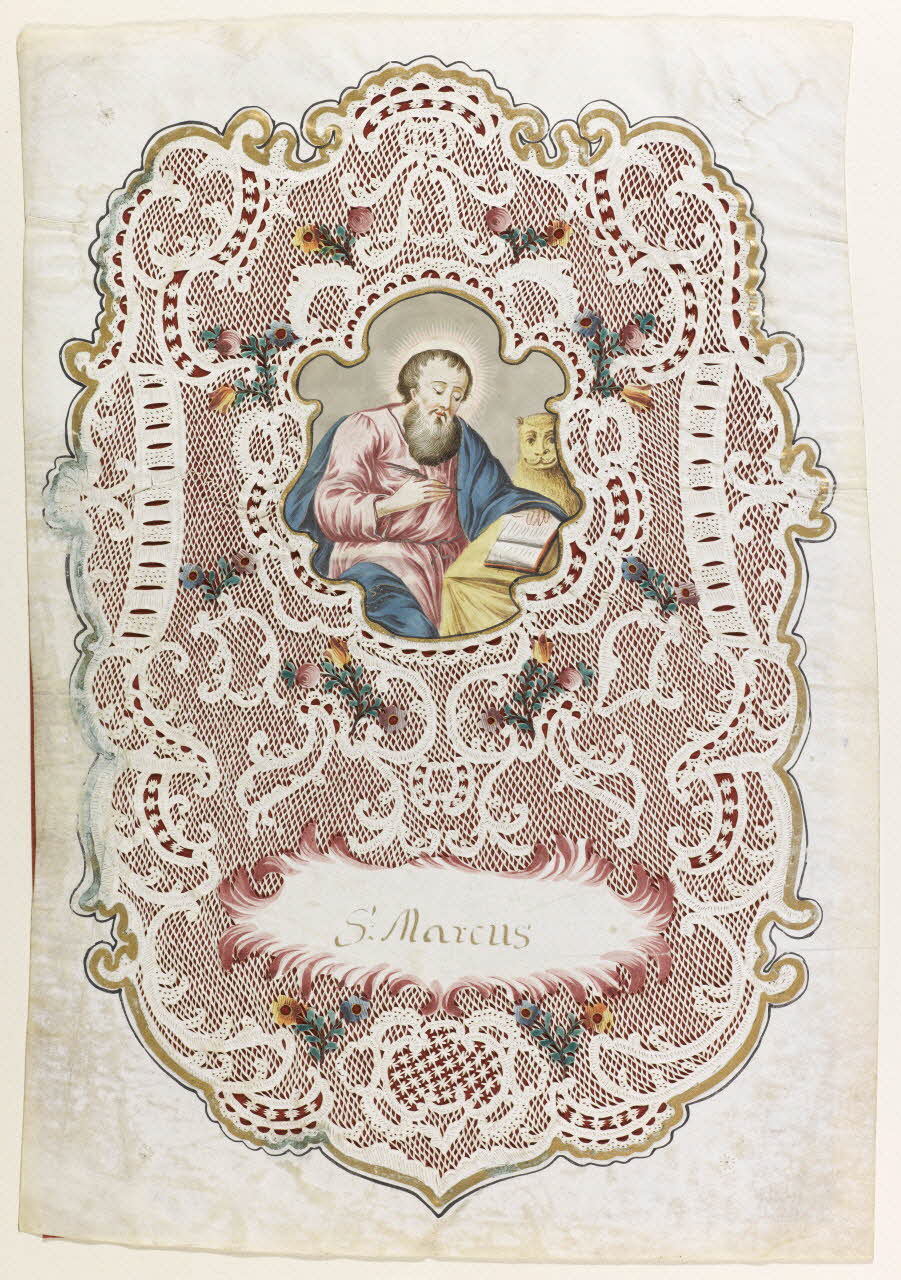 S.t Marcus